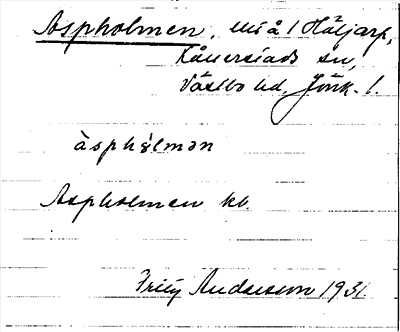 Aspholmen, till å i Häljarp,
Kållerstads sn,
Västbo hd, Jönk. l.
àsphɷ̀lmən
Aspholmen kb.
Fritz Andersson 1931